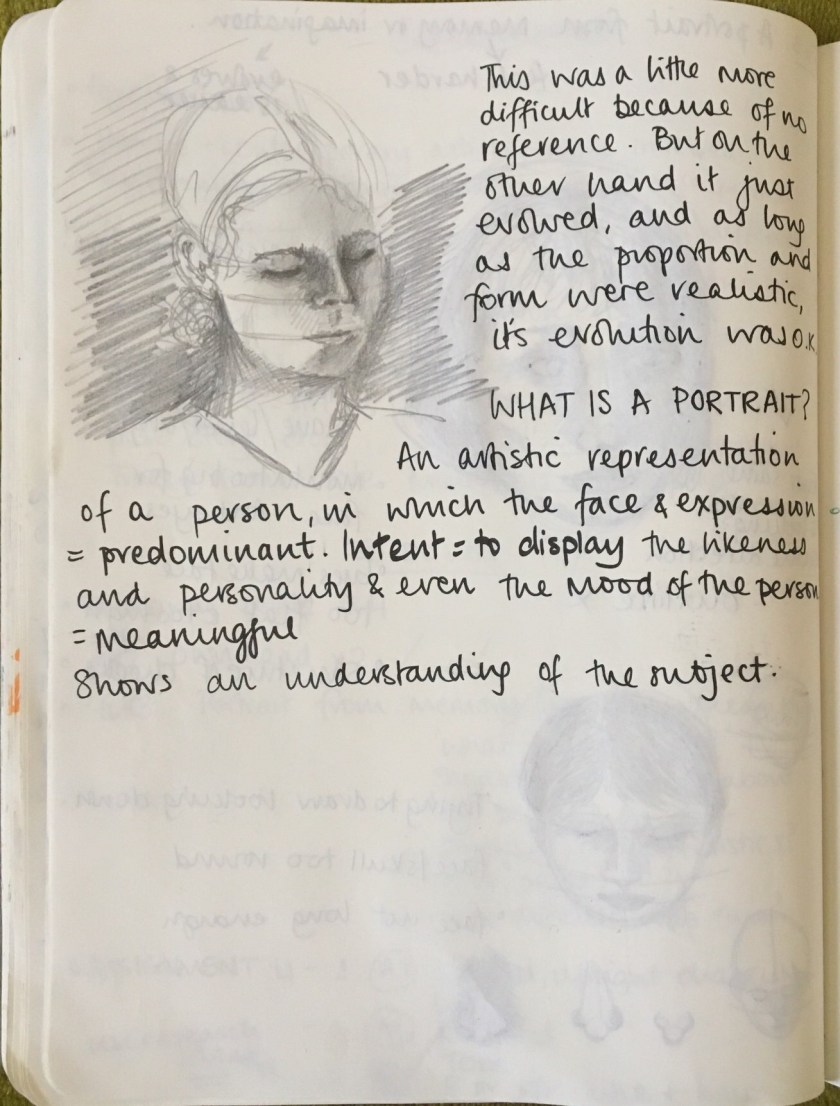 This was a little more
difficult because of no
reference. But on the
other hand it just
evolved, and as long
as the proportion and
form were realistic,
it's evolution was o.k
WHAT IS A PORTRAIT?
An artistic representation
of a person, in which the face & expression
= predominant. Intent = to display the likeness
and personality & even the mood of the person
= meaningful
Shows an understanding of the subject.